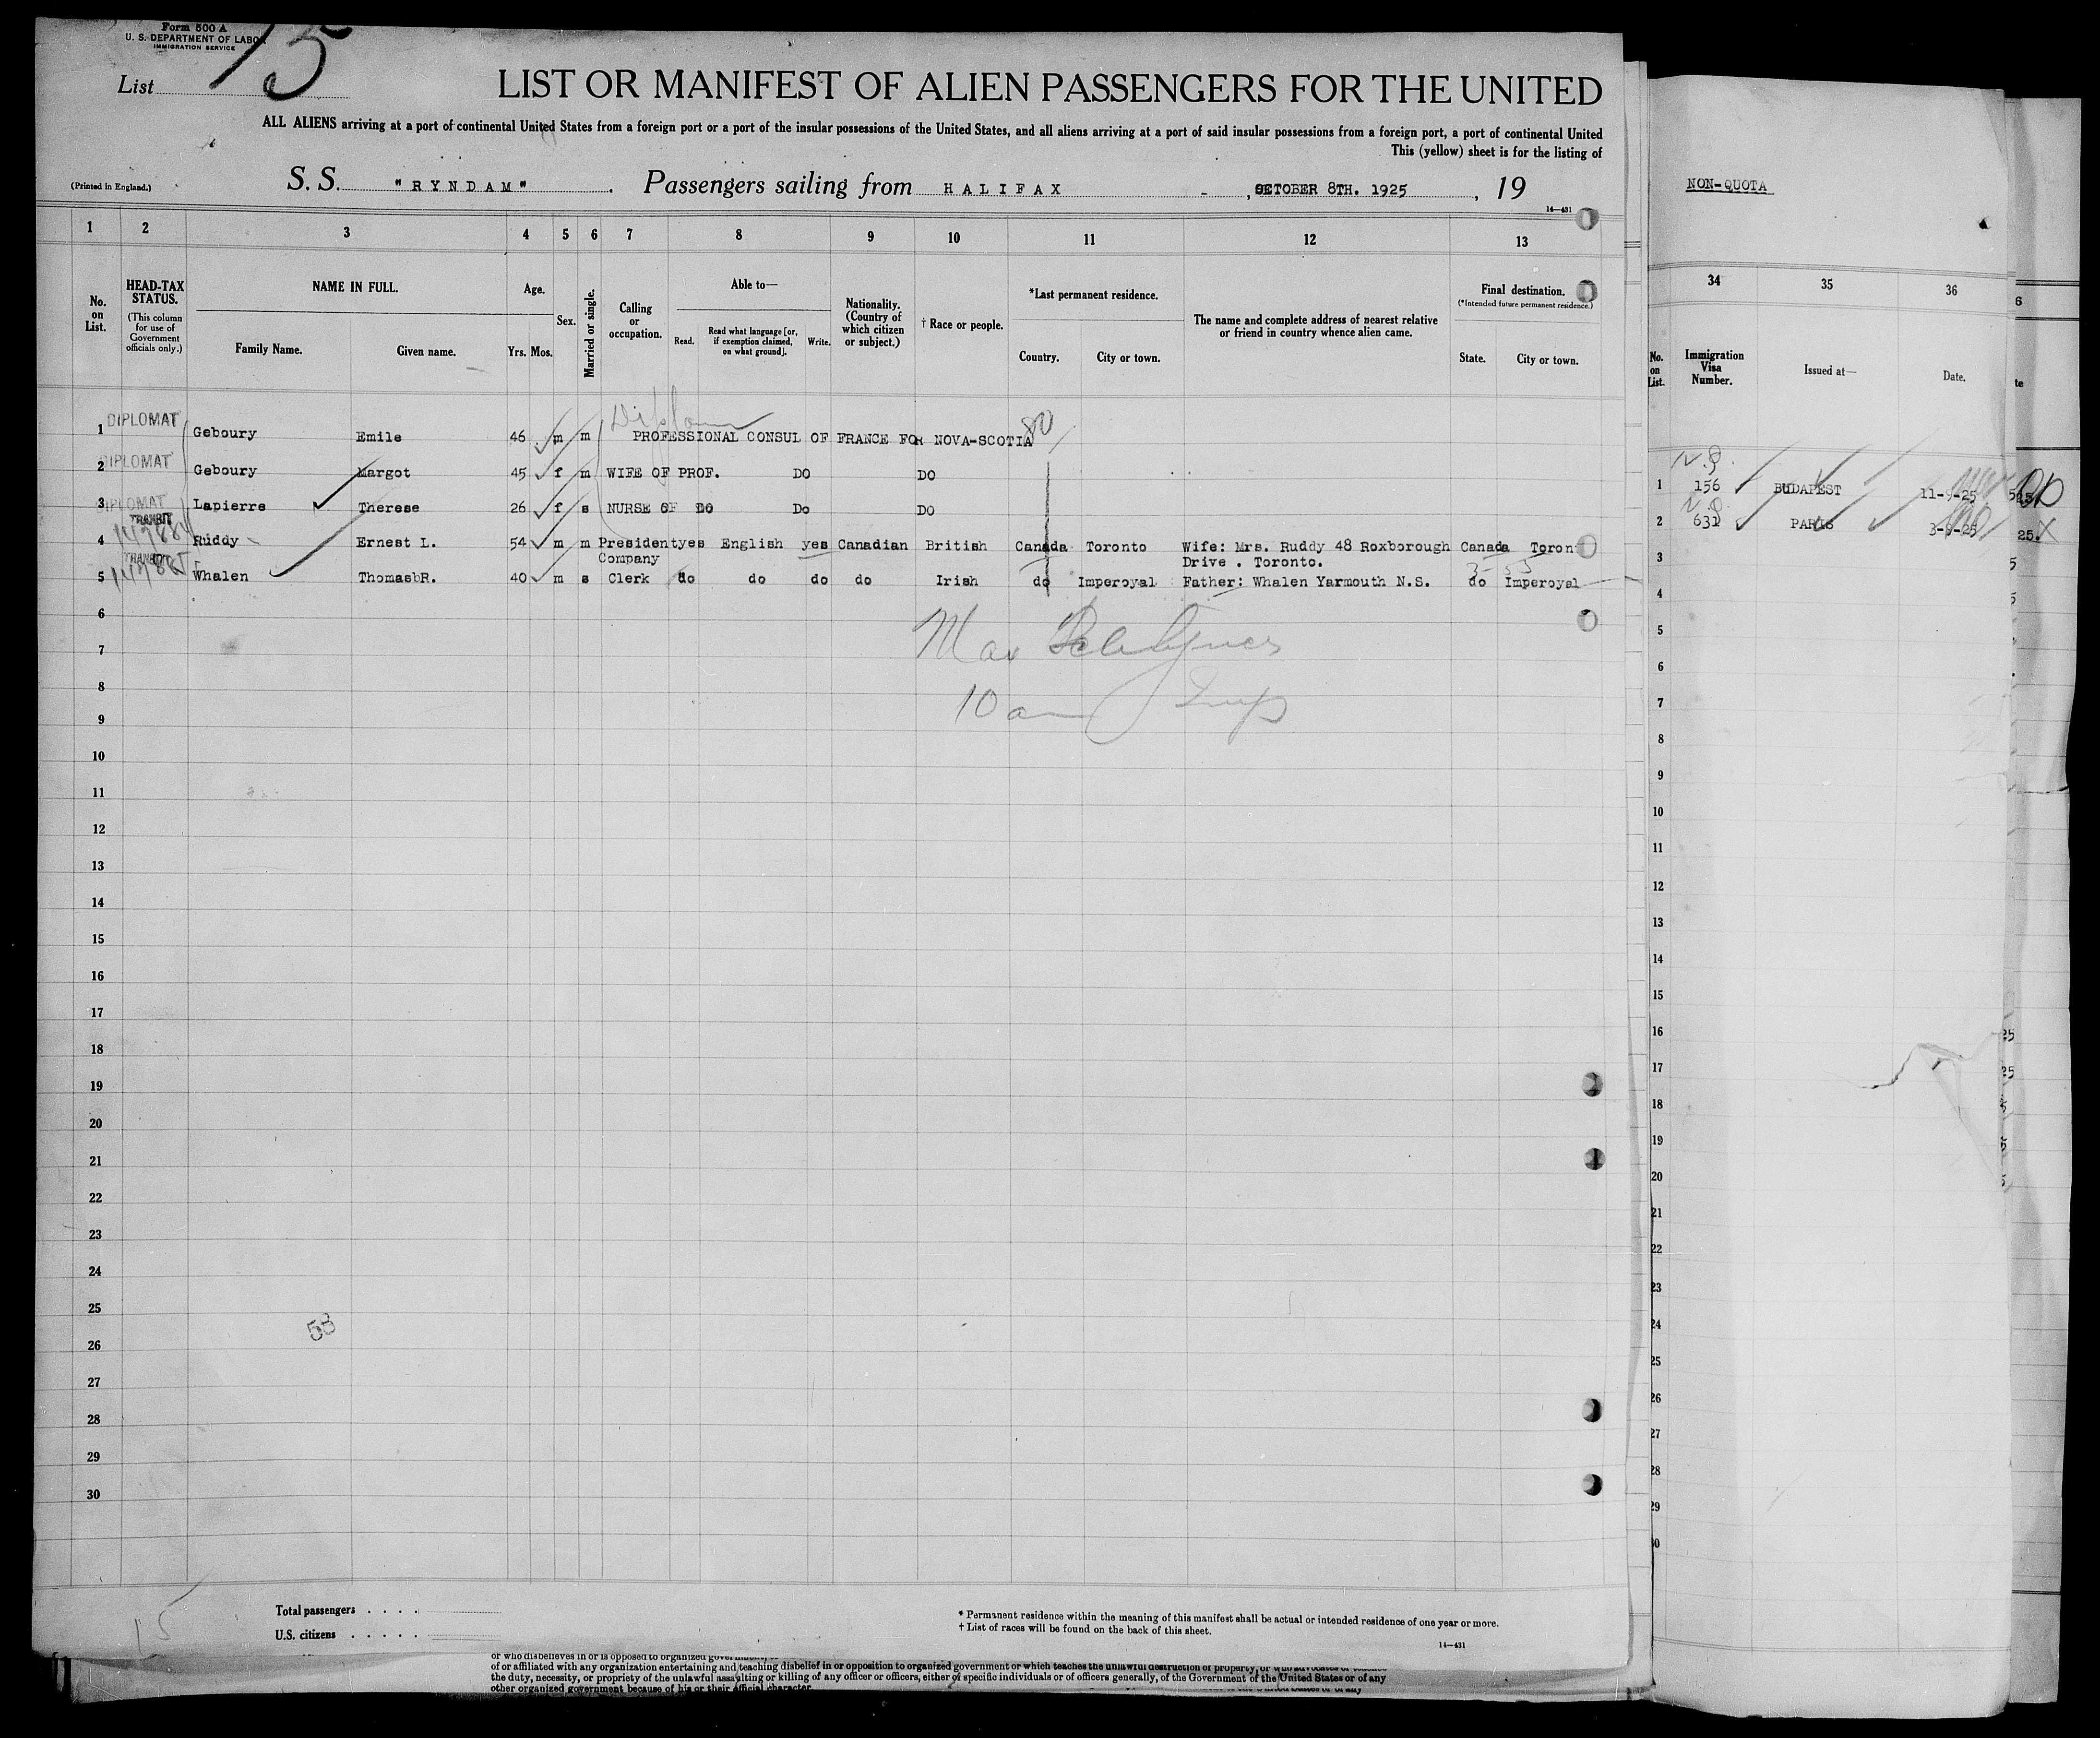 Form 500 A
U. S. DEPARTMENT OF LABOR
IMMIGRATION SERVICE
List 15
LIST OR MANIFEST OF ALIEN PASSENGERS FOR THE UNITED
ALL ALIENS arriving at a port of continental United States from a foreign port or a port of the insular possessions of the United States, and all aliens arriving at a port of said insular possessions from a foreign port, a port of continental United
This (yellow) sheet is for the listing of
(Printed in England.)
S. S. "RYNDAM" . Passengers sailing from HALIFAX - , OCTOBER 8TH. 1925 , 19
14—431
1 2 3 4 5 6 7 8 9 10 11 12 13
No. on List.
HEAD-TAX STATUS. (This column for use of Government officials only.)
NAME IN FULL.
Family Name. Given name.
Age.
Yrs. Mos.
Sex.
Married or single.
Calling or occupation.
Able to—
Read. Read what language [or, if exemption claimed, on what ground]. Write.
Nationality. (Country of which citizen or subject.)
† Race or people.
*Last permanent residence.
Country. City or town.
The name and complete address of nearest relative or friend in country whence alien came.
Final destination.
(*Intended future permanent residence.)
State. City or town.
Diplom
1 DIPLOMAT Geboury Emile 46 m m PROFESSIONAL CONSUL OF FRANCE FOR NOVA-SCOTIA
2 DIPLOMAT Geboury Margot 45 f m WIFE OF PROF. DO DO
3 DIPLOMAT Lapierre Therese 26 f s NURSE OF DO Do DO
4 TRANSIT Ruddy Ernest L. 54 m m President yes English yes Canadian British Canada Toronto Wife: Mrs. Ruddy 48 Roxborough Canada Toron
Company Drive . Toronto.
5 TRANSIT Whalen Thomas R. 40 m s Clerk do do do do Irish do Imperoyal Father: Whalen Yarmouth N.S. do Imperoyal
6
7
8
10 am
9
10
11
12
13
14
15
16
17
18
19
20
21
22
23
24
25
53
26
27
28
29
30
15
Total passengers . . . .
U.S. citizens . . . . .
* Permanent residence within the meaning of this manifest shall be actual or intended residence of one year or more.
† List of races will be found on the back of this sheet.
14—431
of or affiliated with any organization entertaining and teaching disbelief in or opposition to organized government or which teaches the unlawful destruction of property, or
the duty, necessity, or propriety of the unlawful assaulting or killing of any officer or officers, either of specific individuals or of officers generally, of the Government of the United States or of any
other organized government because of his or their official character
NON-QUOTA
34 35 36
No. on List.
Immigration Visa Number.
Issued at—
Date.
1 156 BUDAPEST 11-9-25
2 631 PARIS 3-9-25
3
4
5
6
7
8
9
10
11
12
13
14
15
16
17
18
19
20
21
22
23
24
25
26
27
28
29
30